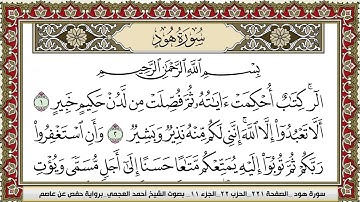 سُورَةُ هُودٍ
بِسْمِ اللَّهِ الرَّحْمَٰنِ الرَّحِيمِ
الٓر ۚ كِتَابٌ أُحْكِمَتْ ءَايَٰتُهُۥ ثُمَّ فُصِّلَتْ مِن لَّدُنْ حَكِيمٍ خَبِيرٍ ١
أَلَّا تَعْبُدُوٓا۟ إِلَّا ٱللَّهَ ۚ إِنَّنِى لَكُم مِّنْهُ نَذِيرٌ وَبَشِيرٌ ٢ وَأَنِ ٱسْتَغْفِرُوا۟
رَبَّكُمْ ثُمَّ تُوبُوٓا۟ إِلَيْهِ يُمَتِّعْكُم مَّتَٰعًا حَسَنًا إِلَىٰٓ أَجَلٍ مُّسَمًّى وَيُؤْتِ
سورة هود _ الصفحة ٢٢١ _ الحزب ٢٢ _ الجزء ١١ _ بصوت الشيخ أحمد العجمي _ برواية حفص عن عاصم